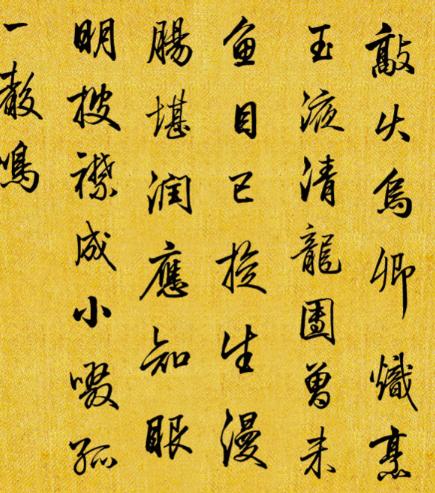 敲火烏卿熾烹
玉液清龍團曾未
魚目已旋生漫
腸堪潤應知眼
明披襟成小啜孤
一鳴